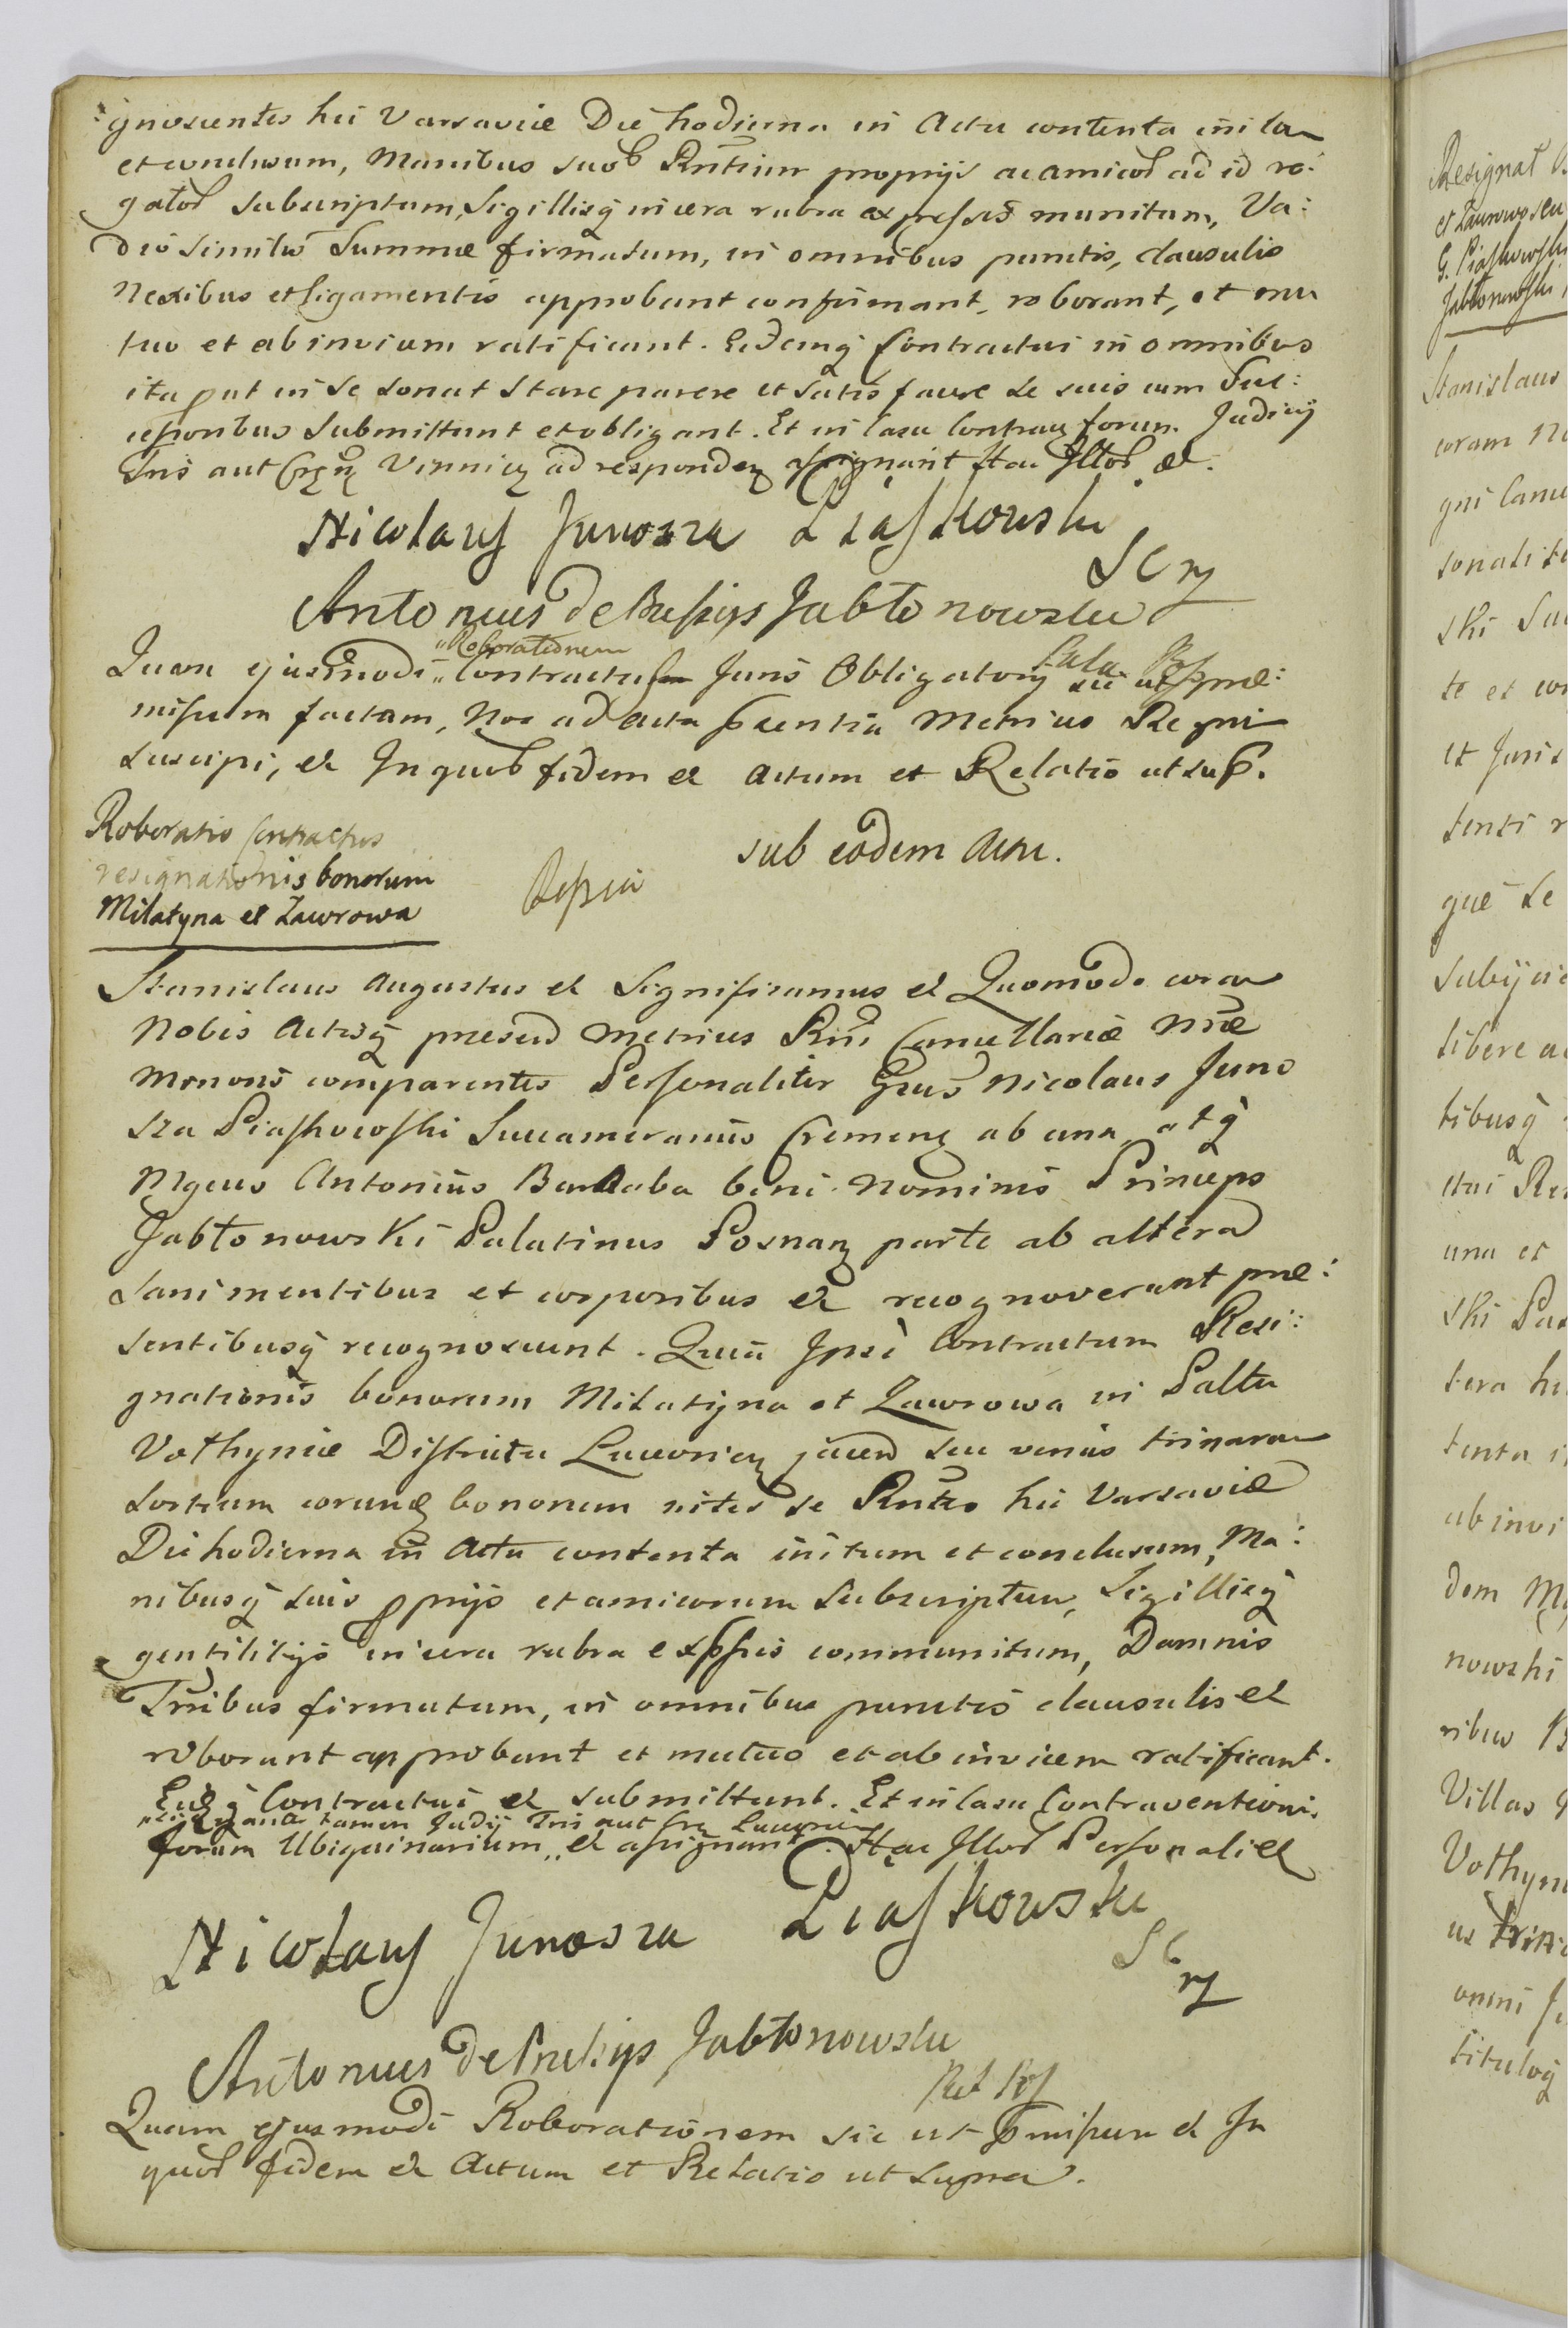 :gnoscentes hic Varsaviae Die hodierna in Actu contenta initam
et conclusum, Manibus suob Rntium proprijs ac amicor ad id ro:
gator subscriptum, Sigillisq in cera rubra expressis munitum, Va:
dio similis Summae firmatum, in omnibus punctis, clausulis
Nexibus et ligamentis approbant confirmant, roborant, et mu
tuo et ab invicem ratificant. Eidemq Contractui in omnibus
ita put in se sonat stare parere et satisfacere se suis cum Suc:
cessoribus submittunt et obligant. Et in casu Contrav forum Judicij
Tris aut Vinnicz ad respondez assignant Hac Illor et.
Nicolaus Junosza Piaskowski
SCrz
Antonius de Prussijs Jabłonowski
Pala Pos
Quam ejusmodi "Roborationem" Contractus Juris Obligatorij sic ut prae:
missum factam, Nos ad Acta psentia Metrices Regni
suscipi, et In quob fidem et Actum et Relatio ut sup.
Roboratio Contractus
resignationis bonorum
Milatyna et Zawrowa
sub eodem Actu.
Stanislaus Augustus et Significamus et Quomodo coram
Nobis Actisq presend Metrices Rni Cancellariae Nrae
Minoris comparentes Personaliter Grsus Nicolaus Juno
sza Piaskowski Succamerarius Cremenc ab una, atq
Mgcus Antonius Barnaba bini Nominis Princeps
Jabłonowski Palatinus Posnanz parte ab altera
Sani mentibus et corporibus et recognoverunt prae:
sentibusq recognoscunt. Quia Ipsi Contractum Resi:
gnationis bonorum Milatyna et Zawrowa in Paltu
Volhyniae Districtu Luceoriez jacend seu verius trinarum
sortium eorund bonorum inter se Rntes hic Varsaviae
Die hodierna in Actu contenta initum et conclusum, Ma:
nibusq suis pprijs et amicorum subscriptum, Sigillisq
gentilitijs in cera rubra expssis communitum, Damnis
Trribus firmatum, in omnibus punctis clausulis et
roborant approbant et mutuo et ab invicem ratificant.
Eidq Contractui et submittunt. Et in casu Contraventionis
forum Ubiquinarium, "tamen Judij Tris aut" et assignant. Hac Illor Personali et
Nicolaus Junosza Piaskowski
SCrz
Antonius de Prussijs Jabłonowski
Pal Pos
Quam ejusmodi Roborationem sic ut pmissum et In
quor fidem et Actum et Relatio ut supra.
Resignat
et Zawrowo
G. Piaskowski
Jabłonowski
Stanislaus
coram No
gni Canc
sonalite
ski Suc
te et cor
et Juris
tenti
que se
subijcie
libere ac
tibusq
ctui
una et
ski
tera hi
tenta i
ab invi
dem M
nowski
ribus
Villas
Volhyn
us
omni
titulog